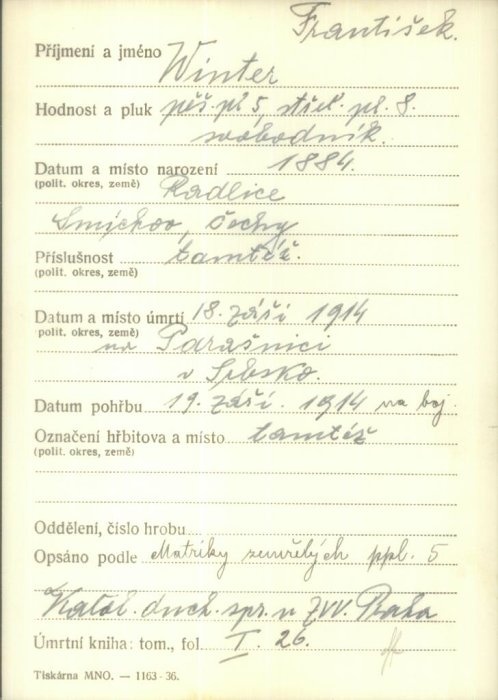 František.
Příjmení a jméno Winter
Hodnost a pluk pěš. pl 5, střel. pl. 8.
svobodník.
Datum a místo narození 1884.
(polit. okres, země) Radlice
Smíchov, Čechy
Příslušnost tamtéž.
(polit. okres, země)
Datum a místo úmrtí 18. září 1914
(polit. okres, země) na Parašnici
v Srbsko.
Datum pohřbu 19. září. 1914 na boj.
Označení hřbitova a místo tamtéž
(polit. okres, země)
Oddělení, číslo hrobu
Opsáno podle Matriky zemřelých ppl. 5
Katol. duch. spr. v ZVV. Praha
Úmrtní kniha: tom., fol. I. 26.
Tiskárna MNO. — 1163-36.